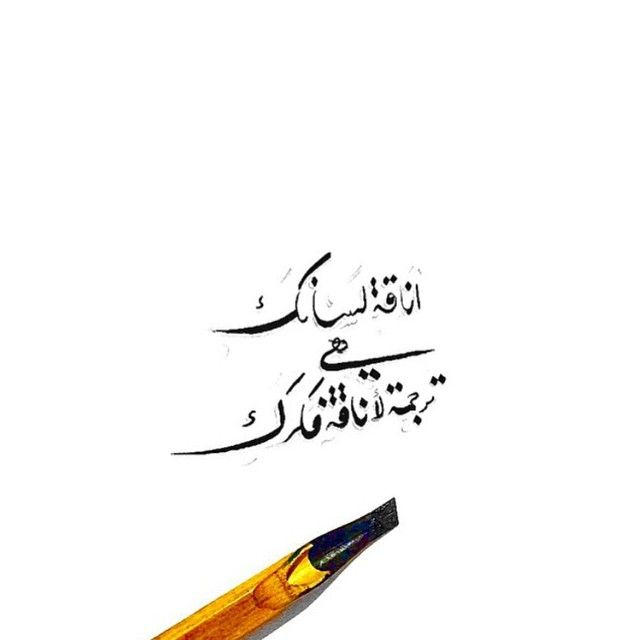 اناقة لسانك
هي
ترجمة لأناقة فكرك